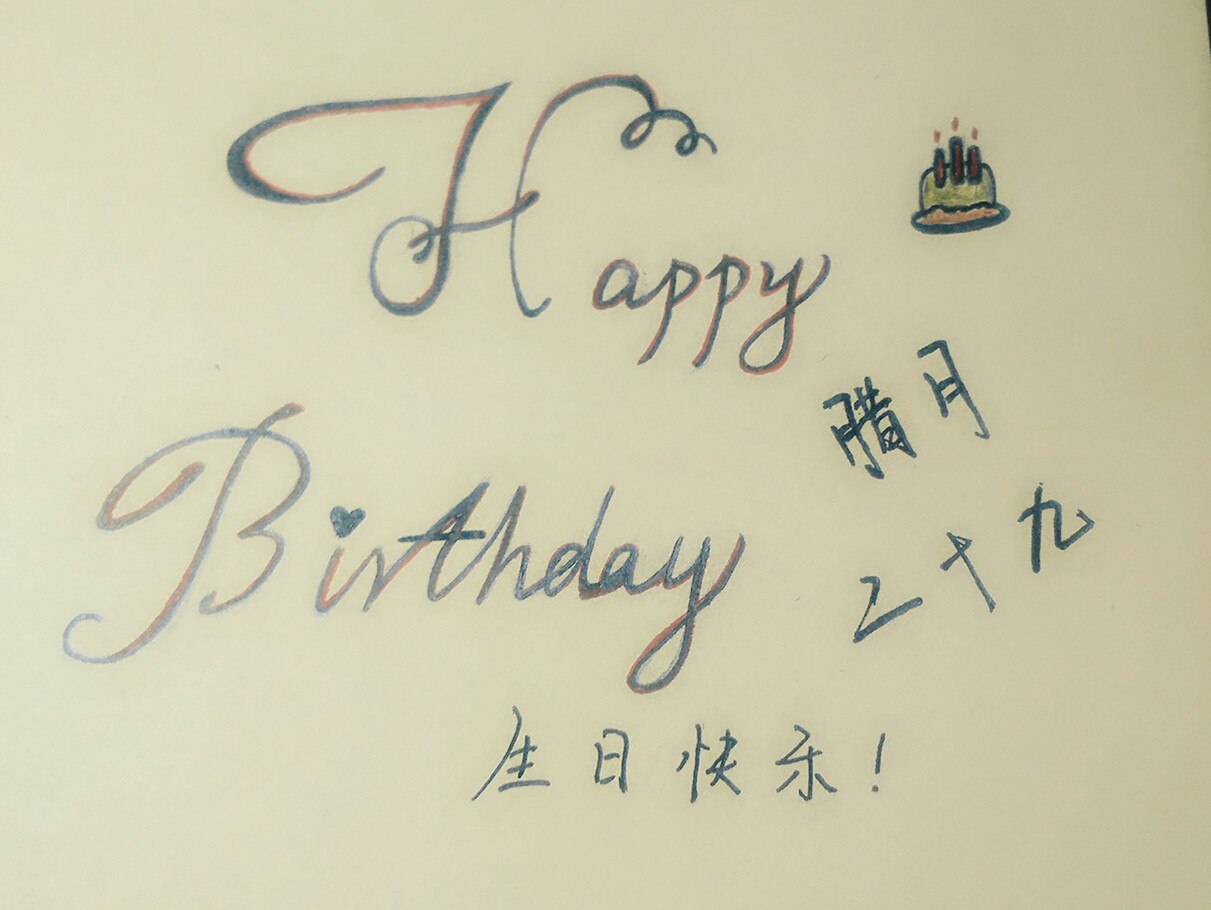 Happy
腊月
Birthday
二十九
生日快乐!